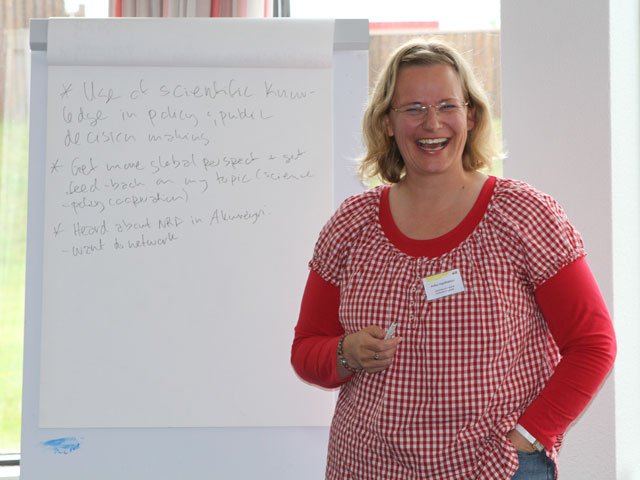 * Use of scientific know-
ledge in policy & public
decision making
* Get more global perspect + get
feed-back on my topic (science
-policy cooperation)
* Heard about NRF in Akureyri
- want to network